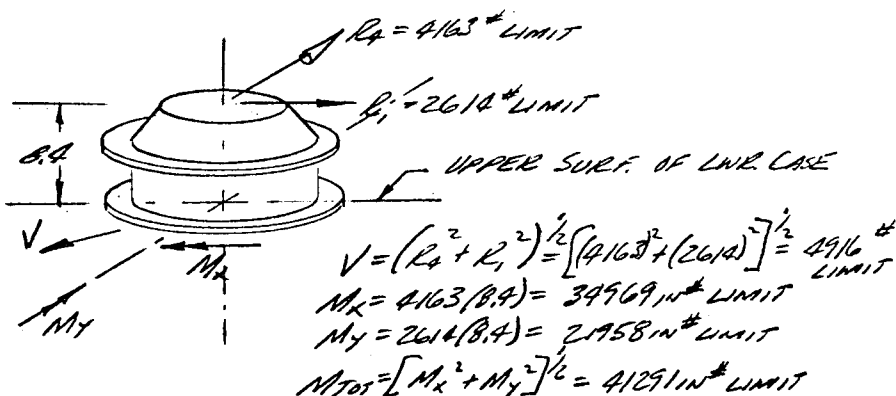 R₄ = 4163 # LIMIT
R₁' = 2614 # LIMIT
8.4
UPPER SURF. OF LWR. CASE
V
Mx
My
V = (R₄² + R₁²)^½ = [(4163)² + (2614)²]^½ = 4916 # LIMIT
Mx = 4163 (8.4) = 34969 IN # LIMIT
My = 2614 (8.4) = 21958 IN # LIMIT
MTOT = [Mx² + My²]^½ = 41291 IN # LIMIT